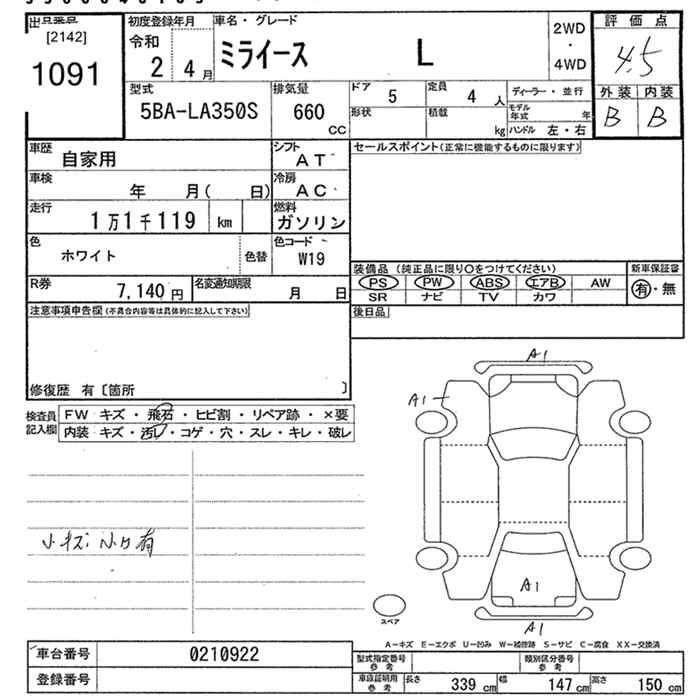 出品番号
[2142]
1091
初度登録年月
令和
2 4 月
車名・グレード
ミライース L
2WD
・
4WD
評価点
4.5
外装 内装
B B
型式
5BA-LA350S
排気量
660
CC
ドア 5
定員 4 人
ディーラー・並行
形状
積載 kg
モデル年式 年
ハンドル 左・右
車歴
自家用
シフト
AT
セールスポイント(正常に機能するものに限ります)
車検
年 月( 日)
冷房
AC
走行
1万1千119 km
燃料
ガソリン
色
ホワイト
色替
色コード
W19
装備品 (純正品に限り〇をつけてください)
新車保証書
PS PW ABS エアB AW
有・無
SR ナビ TV カワ
R券
7,140 円
名変通知期限
月 日
後日品
注意事項申告欄(不具合内容等は具体的に記入して下さい)
修復歴 有〔箇所 〕
検査員記入欄
FW キズ・飛石・ヒビ割・リペア跡・×要
内装 キズ・汚レ・コゲ・穴・スレ・キレ・破レ
小キズ 小凹有
A1
A1
A1
A1
スペア
A-キズ E-エクボ U-凹み W-補修跡 S-サビ C-腐食 XX-交換済
車台番号 0210922
登録番号
型式指定番号参考
類別区分番号参考
車庫証明用参考
長さ 339 cm 幅 147 cm 高さ 150 cm